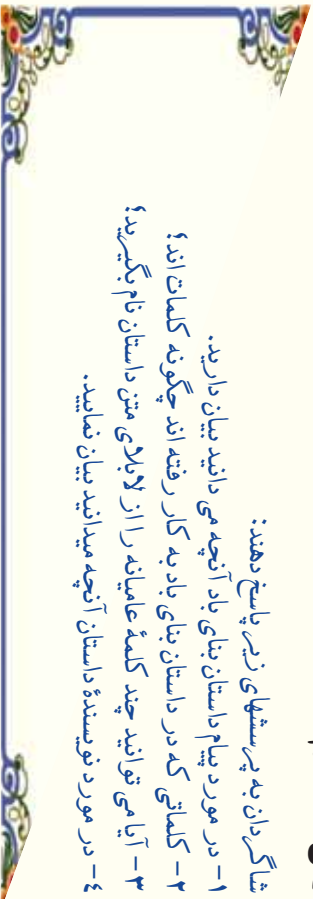 شاگردان به پرسشهای زیر پاسخ دهند:
۱- در مورد پیام داستان بنای باد آنچه می دانید بیان دارید.
۲- کلماتی که در داستان بنای باد به کار رفته اند چگونه کلمات اند؟
۳- آیا می توانید چند کلمهٔ عامیانه را از لابلای متن داستان نام بگیرید؟
٤- در مورد نویسندهٔ داستان آنچه میدانید بیان نمایید.